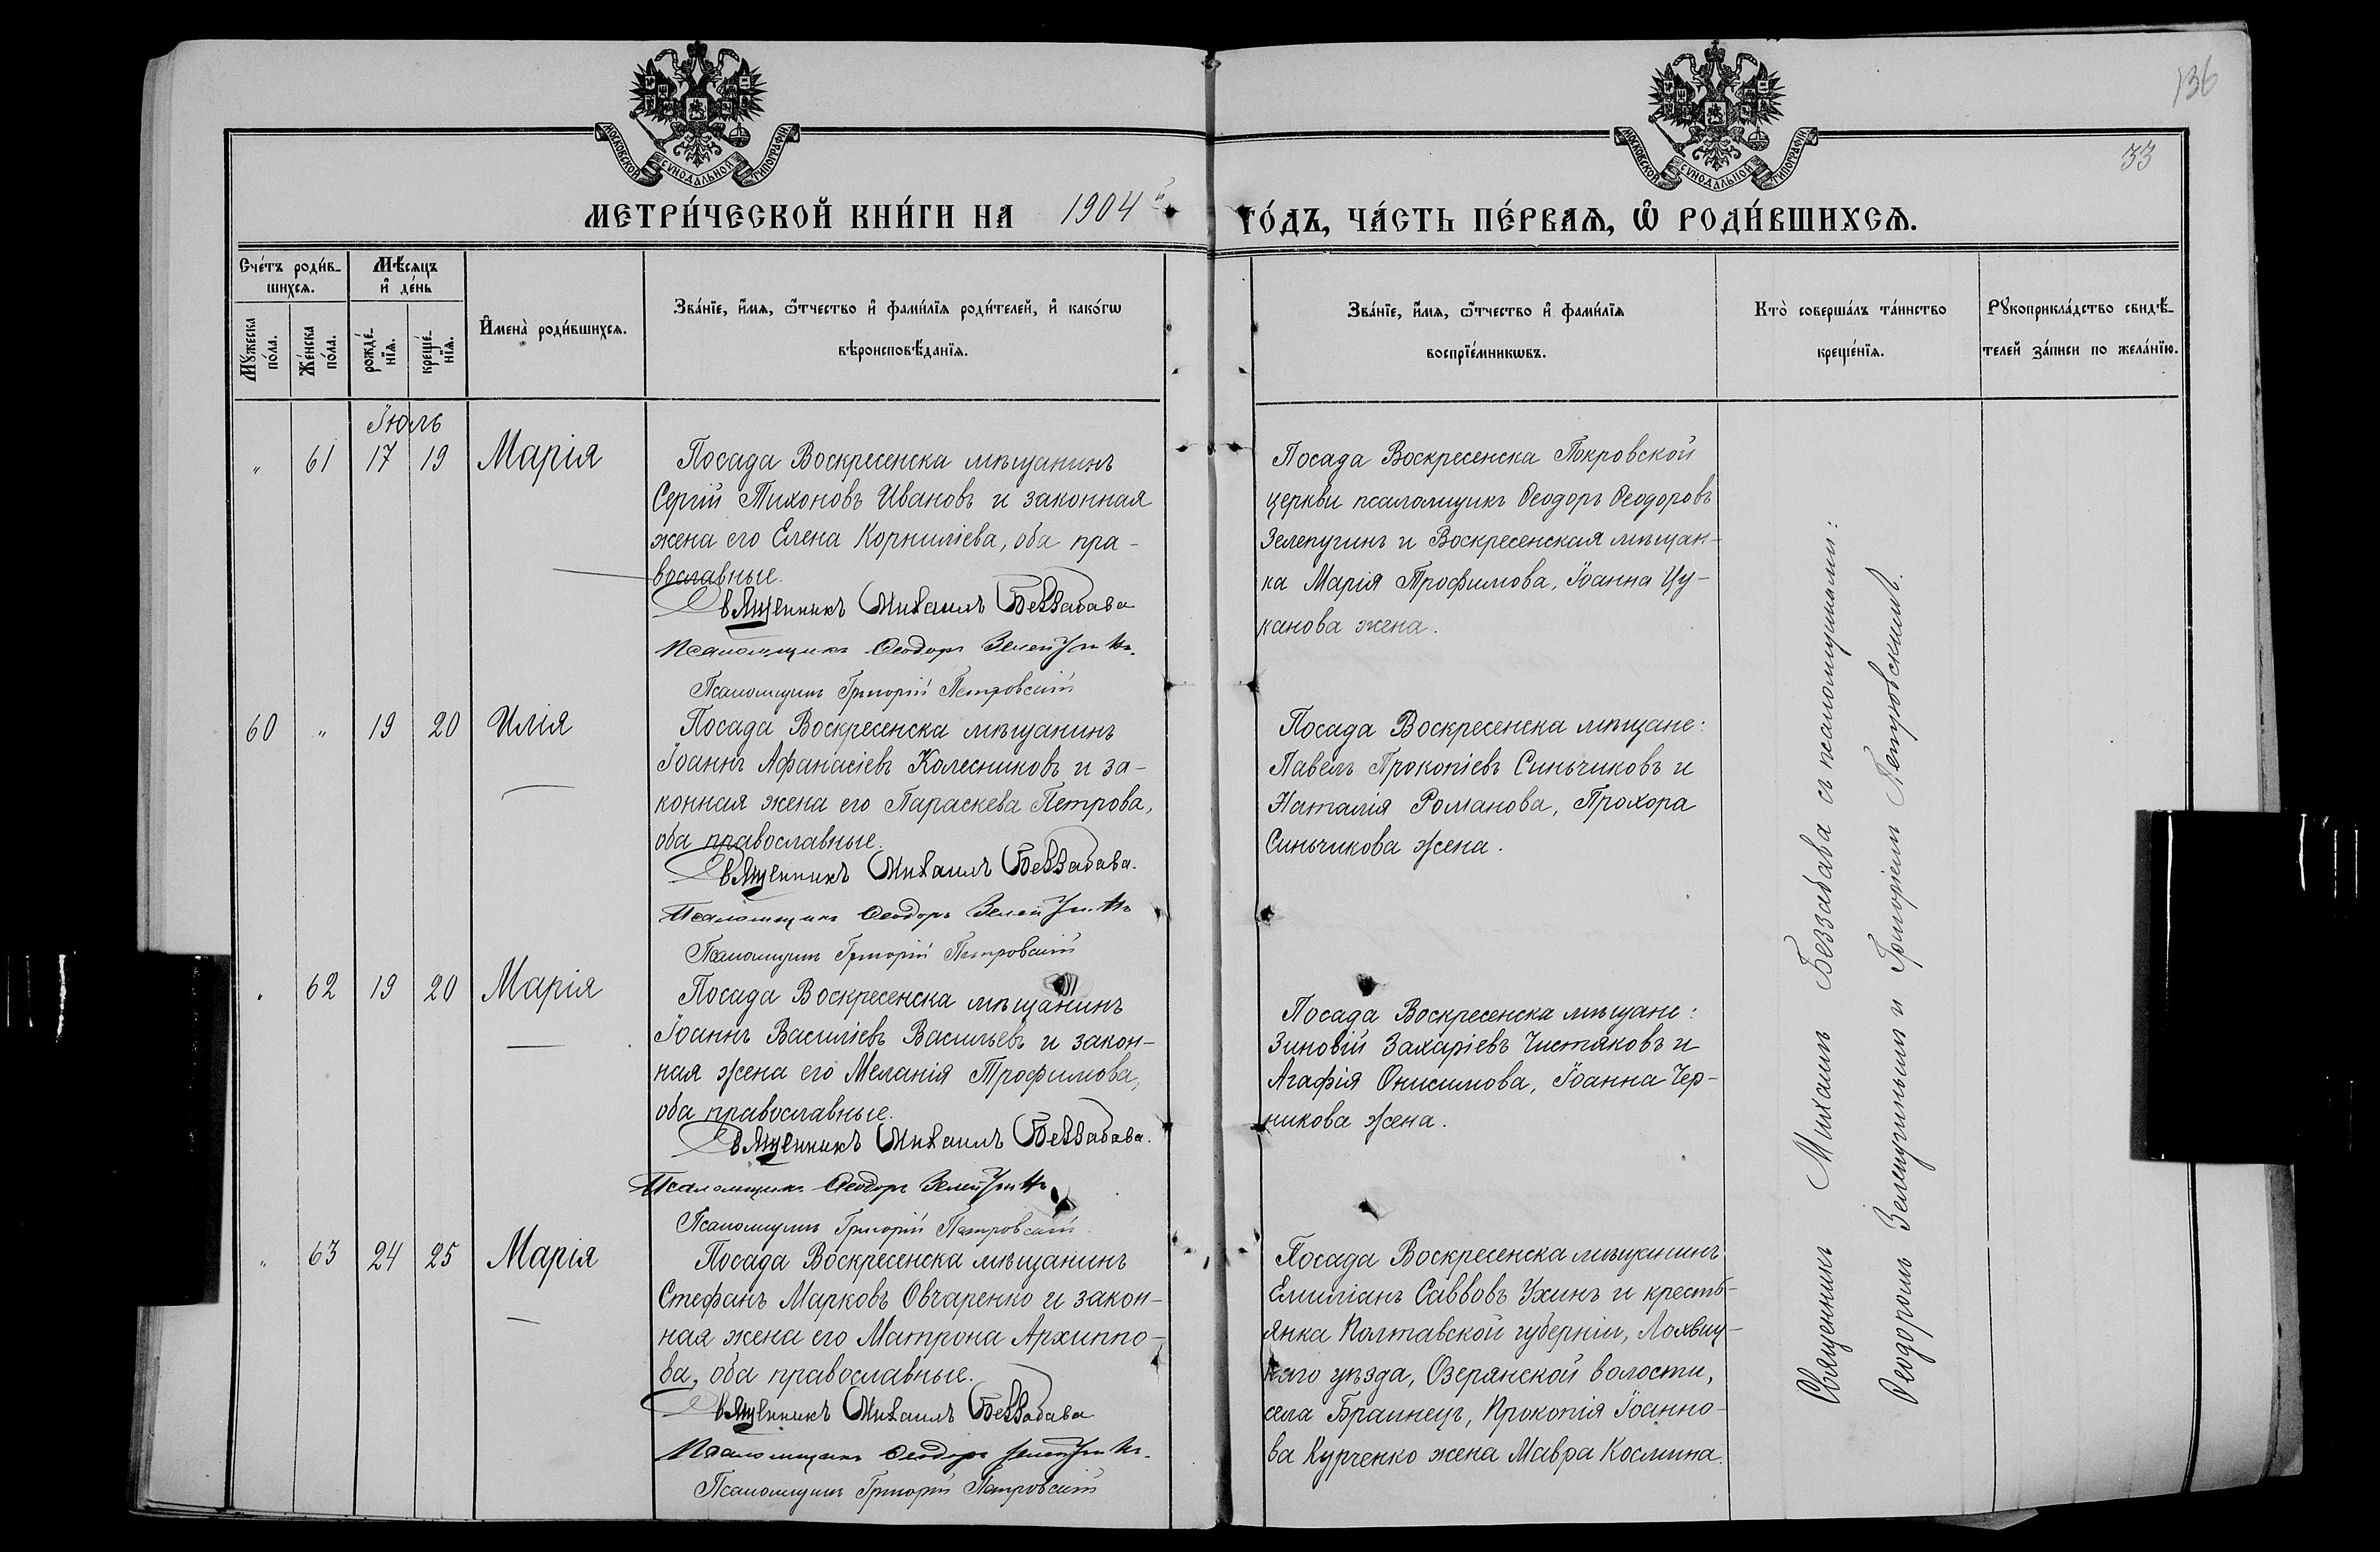 136
33
МОСКОВСКОЙ СУНОДАЛЬНОЙ ТИПОГРАФІИ.
МОСКОВСКОЙ СУНОДАЛЬНОЙ ТИПОГРАФІИ.
МЕТРИ́ЧЕСКОЙ КНИ́ГИ НА 1904й ГО́ДЪ, ЧА́СТЬ ПЕ́РВАѦ, Ѡ҆ РОДИ́ВШИХСѦ.
Сче́тъ роди́в-
шихсѧ.
Мꙋжеска по́ла.
Же́нска по́ла.
Мѣ́сяцъ
и҆ де́нь
рожде́-нїѧ.
креще́-нїѧ.
И҆мена̀ роди́вшихсѧ.
Зва́нїе, и҆́мѧ, ѻ҆́тчество и҆ фами́лїѧ роди́телей, и҆ како́гѡ
вѣроисповѣ́данїѧ.
Зва́нїе, и҆́мѧ, ѻ҆́тчество и҆ фами́лїѧ
воспрїе́мникѡвъ.
Кто̀ соверша́лъ та́инство
креще́нїѧ.
Рꙋкоприкла́дство свидѣ́-
телей за́писи по жела́нїю.
Іюль
„ 61 17 19 Марія
Посада Воскресенска мѣщанинъ
Сергій Тихоновъ Ивановъ и законная
жена его Елена Корниліева, оба пра-
вославные.
Священникъ Михаилъ Беззабава
Псаломщикъ Ѳеодоръ Зелепугинъ.
Псаломщикъ Григорій Петровскій
Посада Воскресенска Покровской
церкви псаломщикъ Ѳеодоръ Ѳеодоровъ
Зелепугинъ и Воскресенская мѣщан-
ка Марія Трофимова, Іоанна Цу-
канова жена.
60 „ 19 20 Илія
Посада Воскресенска мѣщанинъ
Іоаннъ Афанасіевъ Колесниковъ и за-
конная жена его Параскева Петрова,
оба православные.
Священникъ Михаилъ Беззабава.
Псаломщикъ Ѳеодоръ Зелепугинъ
Псаломщикъ Григорій Петровскій
Посада Воскресенска мѣщане:
Павелъ Прокопіевъ Синьчиковъ и
Наталія Романова, Прохора
Синьчикова жена.
„ 62 19 20 Марія
Посада Воскресенска мѣщанинъ
Іоаннъ Василіевъ Васильевъ и закон-
ная жена его Меланія Трофимова,
оба православные.
Священникъ Михаилъ Беззабава.
Псаломщикъ Ѳеодоръ Зелепугинъ
Псаломщикъ Григорій Петровскій
Посада Воскресенска мѣщане:
Зиновій Захаріевъ Чистяковъ и
Агафія Онисимова, Іоанна Чер-
никова жена.
„ 63 24 25 Марія
Посада Воскресенска мѣщанинъ
Стефанъ Марковъ Овчаренко и закон-
ная жена его Матрона Архиппо-
ва, оба православные.
Священникъ Михаилъ Беззабава
Псаломщикъ Ѳеодоръ Зелепугинъ.
Псаломщикъ Григорій Петровскій
Посада Воскресенска мѣщанинъ
Емиліанъ Саввовъ Ухинъ и кресть-
янка Полтавской губерніи, Лохвиц-
каго уѣзда, Озерянской волости,
села Браинецъ, Прокопія Іоанно-
ва Курченко жена Мавра Космина.
Священникъ Михаилъ Беззабава съ псаломщиками:
Ѳеодоромъ Зелепугинымъ и Григоріемъ Петровскимъ.